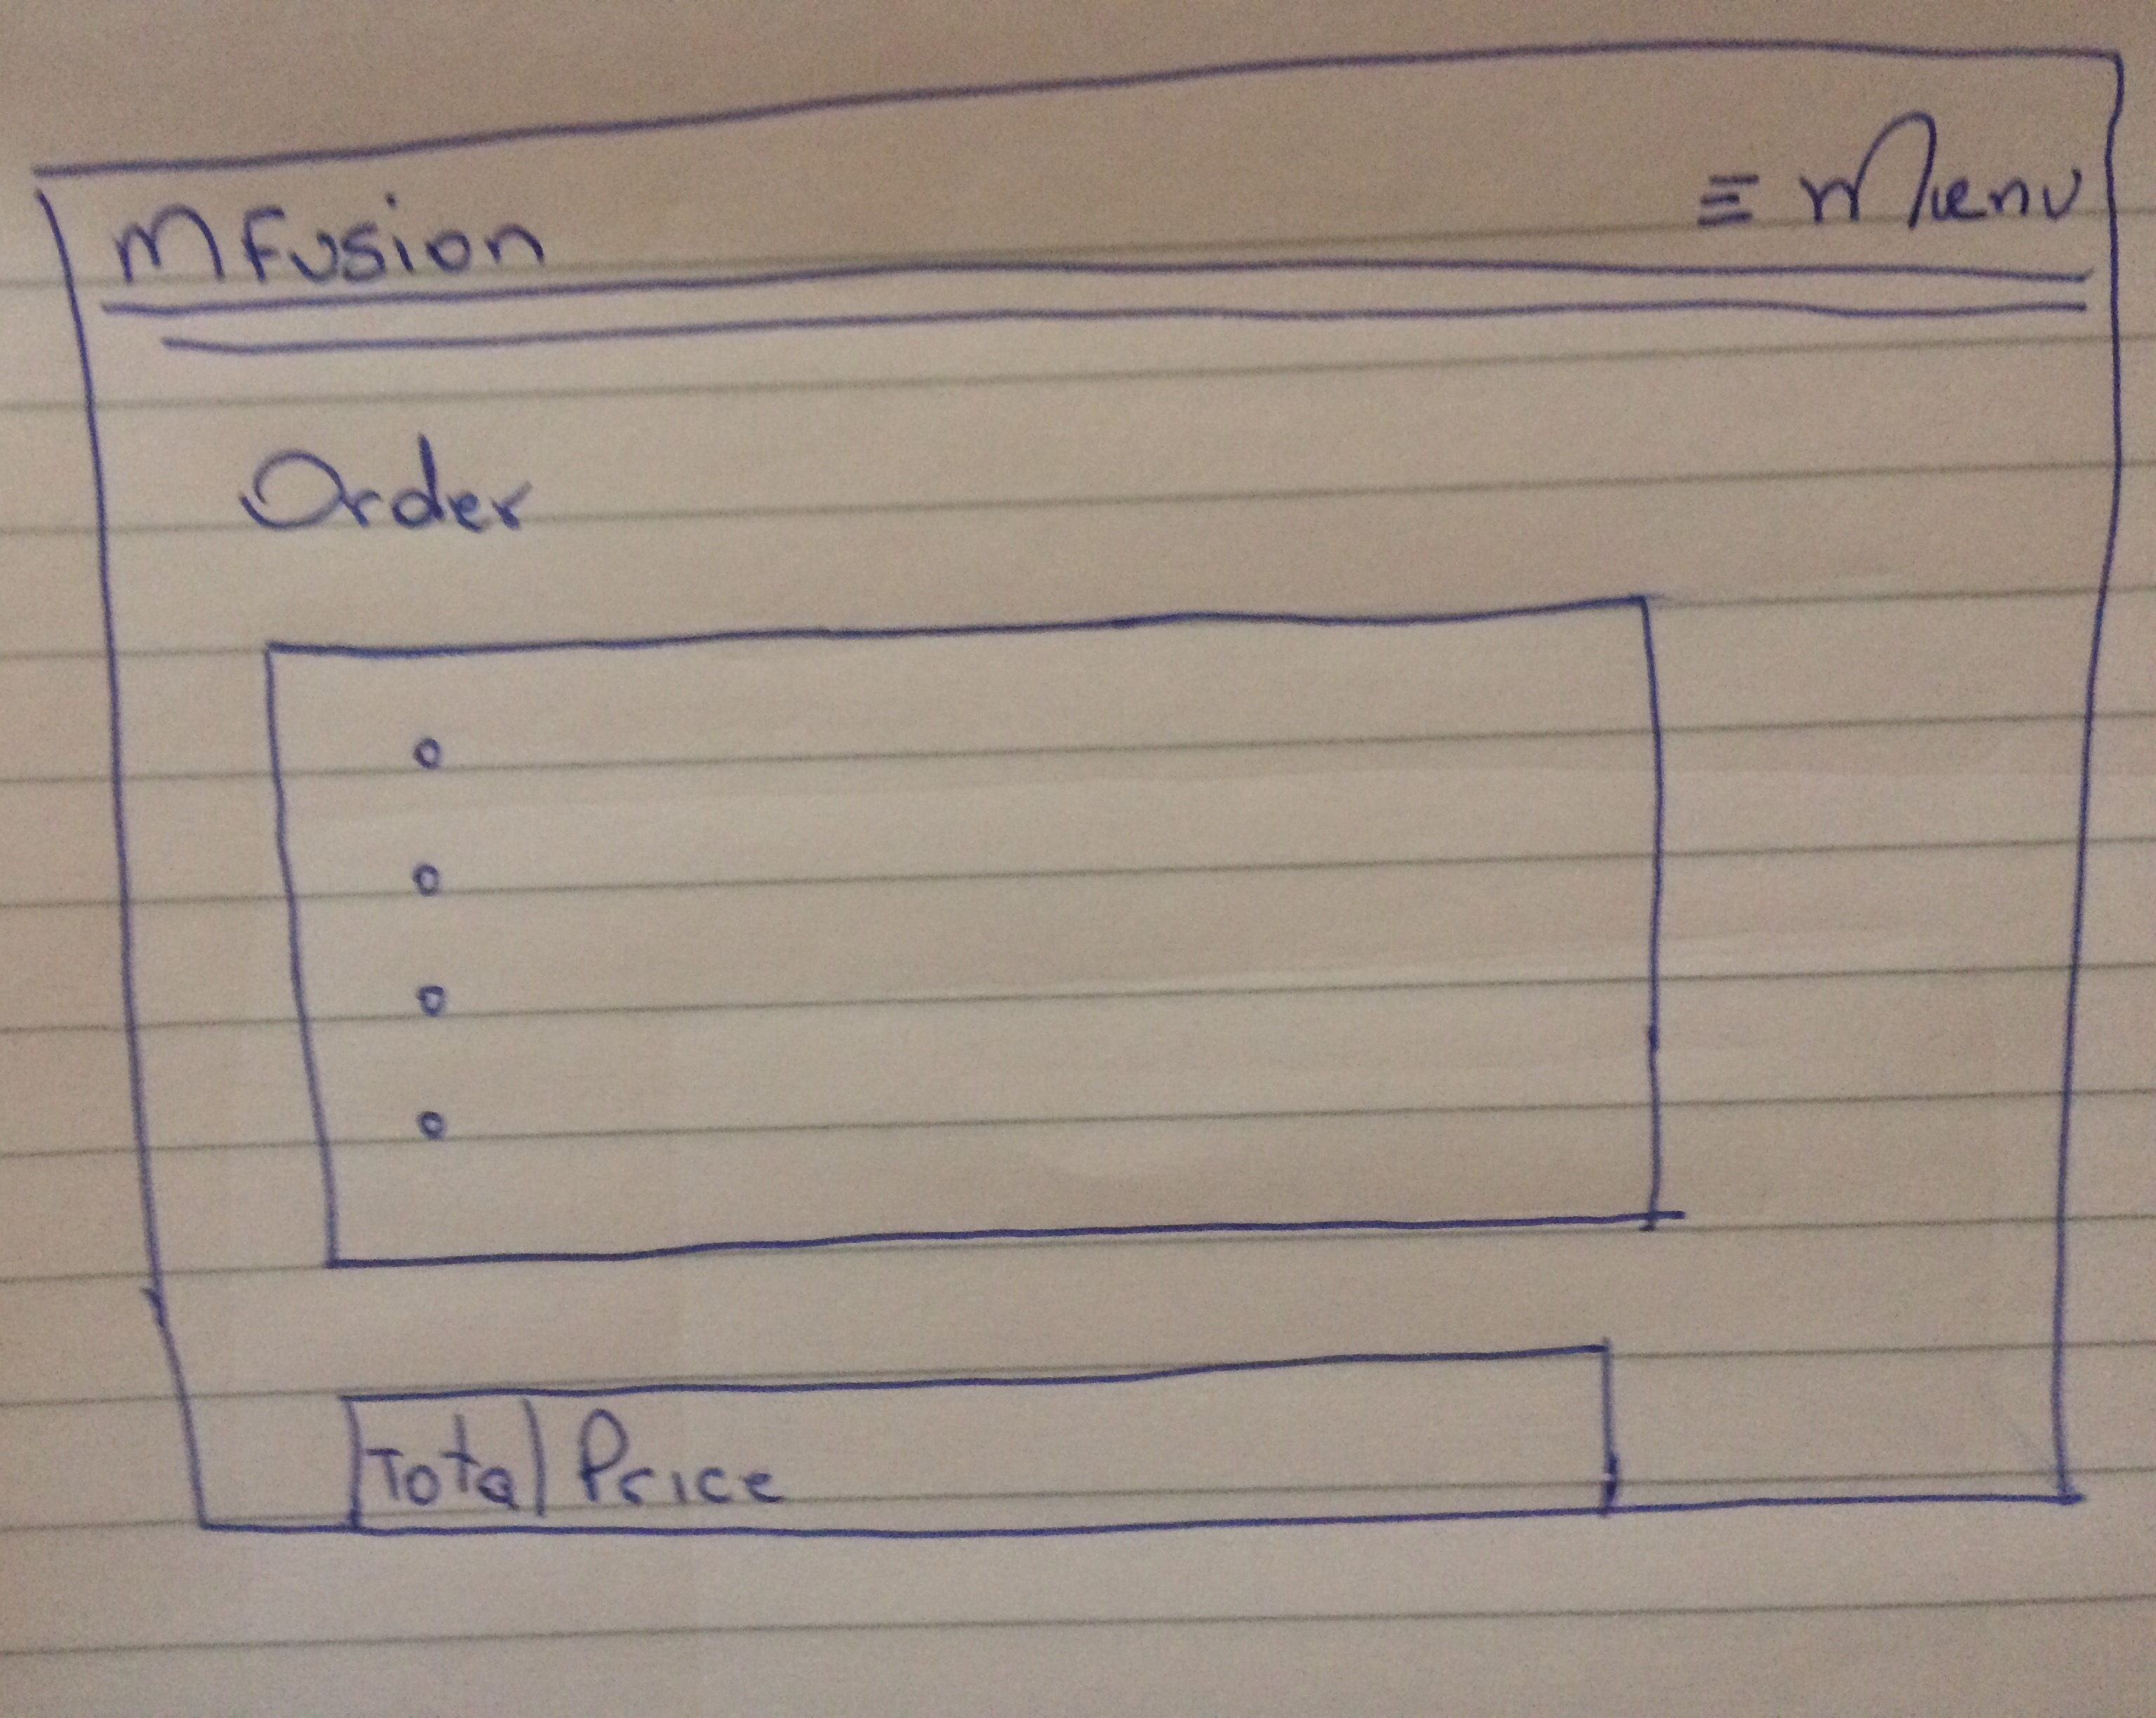 MFusion
≡ Menu
Order
Total Price